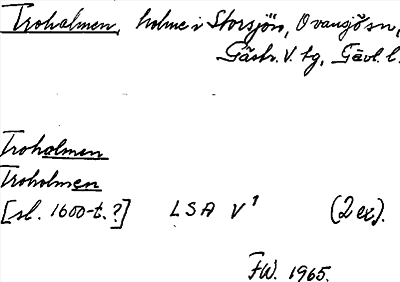 Troholmen, holme i Storsjön, Ovansjö sn,
Gästr. V. tg, Gävl. l.
Troholmen
Troholmen
[sl. 1600-t.?] LSA V¹ (2 ex).
FW. 1965.